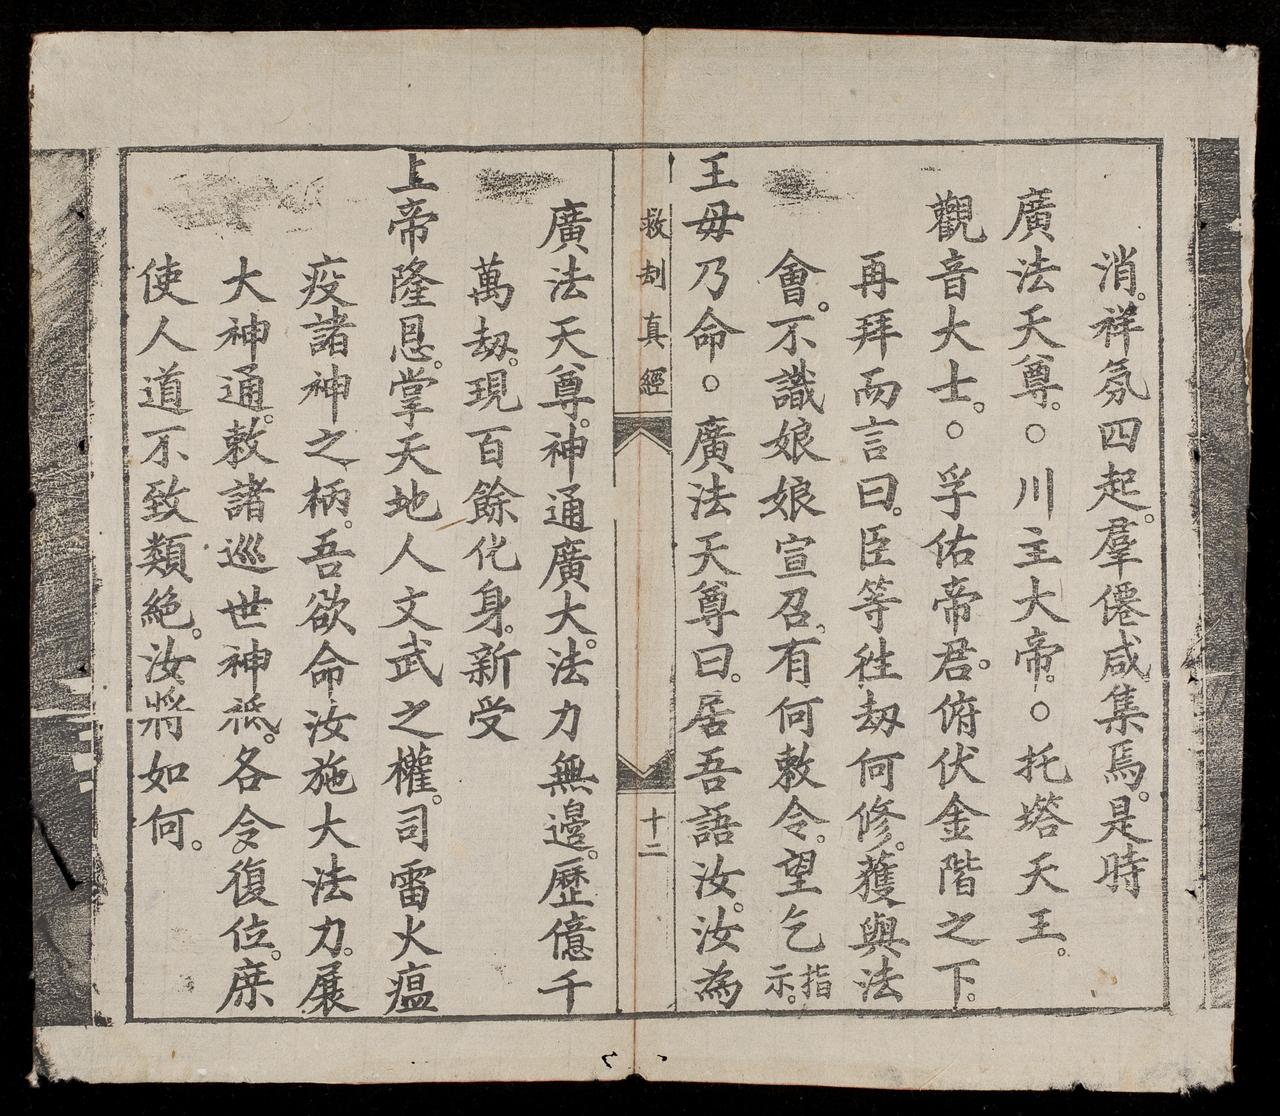 消。祥氛四起。羣僊咸集焉。是時
廣法天尊。○川主大帝。○托塔天王。
觀音大士。○孚佑帝君。俯伏金階之下。
再拜而言曰。臣等往劫何修。獲與法
會。不識娘娘宣召。有何敕令。望乞指示。
王毋乃命○廣法天尊曰。居吾語汝。汝為
救刦真經
十二
廣法天尊。神通廣大。法力無邊。歷億千
萬劫。現百餘化身。新受
上帝隆恩。掌天地人文武之權。司雷火瘟
疫諸神之柄。吾欲命汝施大法力。展
大神通。敕諸巡世神祇。各令復位。庶
使人道不致類絕。汝將如何。